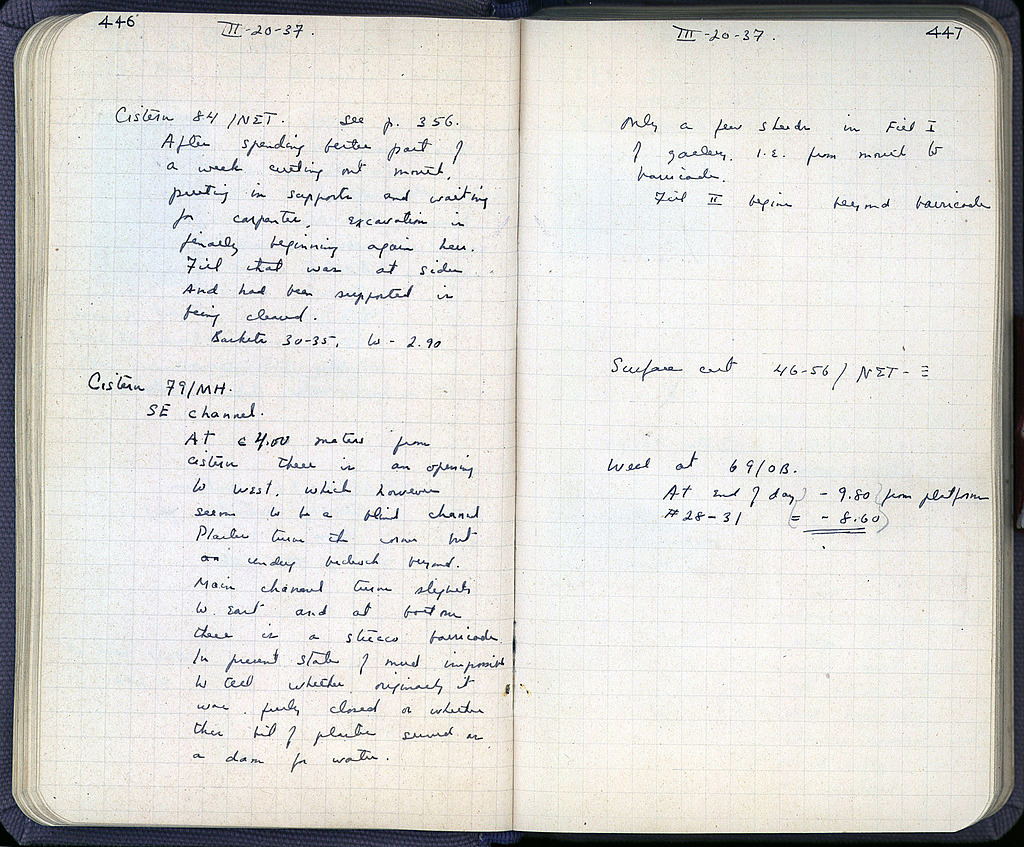 446
III-20-37.
Cistern 84/NET. see p. 356.
After spending better part of
a week cutting out mouth,
putting in supports and waiting
for carpenter, excavation is
finally beginning again here.
Fill that was at sides
and had been supported is
being cleared.
Baskets 30-35, W - 2.90
Cistern 79/MH.
SE channel.
At c 4.00 meters from
cistern there is an opening
to west, which however
seems to be a blind channel
Plaster turns the corner but
undug bedrock beyond.
Main channel turns slightly
to East and at bottom
there is a stucco barricade.
In present state of mud impossible
to tell whether originally it
was fully closed or whether
this bit of plaster served as
a dam for water.
447
III-20-37.
Only a few sherds in Fill I
of gallery. I.E. from mouth to
barricade.
Fill II begins beyond barricade
Surface cut 46-56/NET-Ξ
Well at 69/OB.
At End of day } - 9.80 } from platform
#28-31 = { - 8.60 }